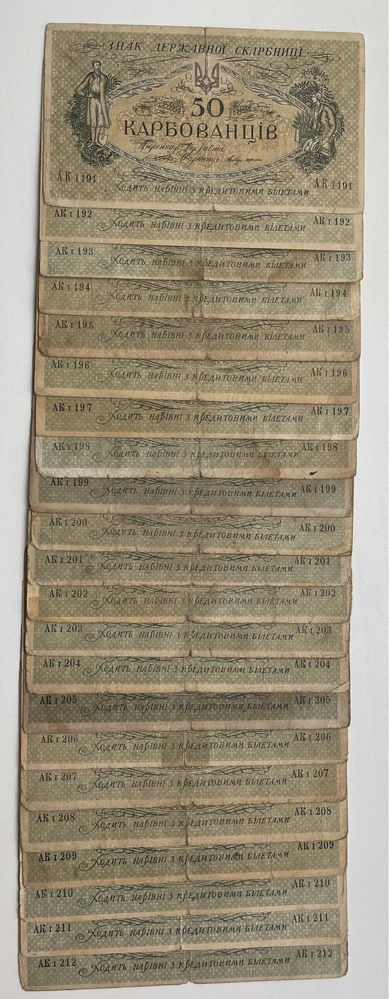 ЗНАК ДЕРЖАВНОЇ СКАРБНИЦІ
50
КАРБОВАНЦІВ
АК I 191 АК I 191
ХОДИТЬ НАРІВНІ З КРЕДИТОВИМИ БІЛЕТАМИ
АК I 192 АК I 192
ХОДИТЬ НАРІВНІ З КРЕДИТОВИМИ БІЛЕТАМИ
АК I 193 АК I 193
ХОДИТЬ НАРІВНІ З КРЕДИТОВИМИ БІЛЕТАМИ
АК I 194 АК I 194
ХОДИТЬ НАРІВНІ З КРЕДИТОВИМИ БІЛЕТАМИ
АК I 195 АК I 195
ХОДИТЬ НАРІВНІ З КРЕДИТОВИМИ БІЛЕТАМИ
АК I 196 АК I 196
ХОДИТЬ НАРІВНІ З КРЕДИТОВИМИ БІЛЕТАМИ
АК I 197 АК I 197
ХОДИТЬ НАРІВНІ З КРЕДИТОВИМИ БІЛЕТАМИ
АК I 198 АК I 198
ХОДИТЬ НАРІВНІ З КРЕДИТОВИМИ БІЛЕТАМИ
АК I 199 АК I 199
ХОДИТЬ НАРІВНІ З КРЕДИТОВИМИ БІЛЕТАМИ
АК I 200 АК I 200
ХОДИТЬ НАРІВНІ З КРЕДИТОВИМИ БІЛЕТАМИ
АК I 201 АК I 201
ХОДИТЬ НАРІВНІ З КРЕДИТОВИМИ БІЛЕТАМИ
АК I 202 АК I 202
ХОДИТЬ НАРІВНІ З КРЕДИТОВИМИ БІЛЕТАМИ
АК I 203 АК I 203
ХОДИТЬ НАРІВНІ З КРЕДИТОВИМИ БІЛЕТАМИ
АК I 204 АК I 204
ХОДИТЬ НАРІВНІ З КРЕДИТОВИМИ БІЛЕТАМИ
АК I 205 АК I 205
ХОДИТЬ НАРІВНІ З КРЕДИТОВИМИ БІЛЕТАМИ
АК I 206 АК I 206
ХОДИТЬ НАРІВНІ З КРЕДИТОВИМИ БІЛЕТАМИ
АК I 207 АК I 207
ХОДИТЬ НАРІВНІ З КРЕДИТОВИМИ БІЛЕТАМИ
АК I 208 АК I 208
ХОДИТЬ НАРІВНІ З КРЕДИТОВИМИ БІЛЕТАМИ
АК I 209 АК I 209
ХОДИТЬ НАРІВНІ З КРЕДИТОВИМИ БІЛЕТАМИ
АК I 210 АК I 210
ХОДИТЬ НАРІВНІ З КРЕДИТОВИМИ БІЛЕТАМИ
АК I 211 АК I 211
ХОДИТЬ НАРІВНІ З КРЕДИТОВИМИ БІЛЕТАМИ
АК I 212 АК I 212
ХОДИТЬ НАРІВНІ З КРЕДИТОВИМИ БІЛЕТАМИ